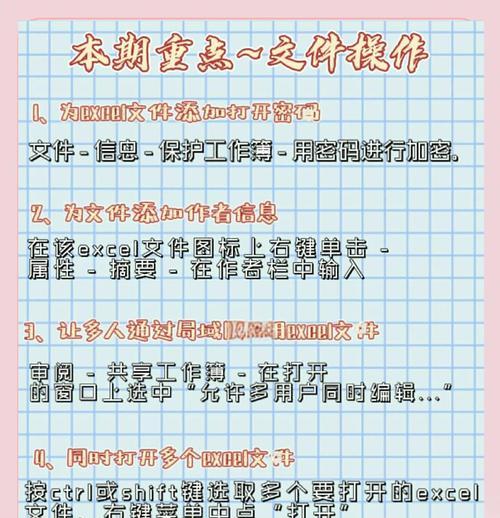 本期重点~文件操作
1、为excel文件添加打开密码
文件-信息-保护工作簿-用密码进行加密。
2、为文件添加作者信息
在该excel文件图标上右键单击 -
属性 - 摘要 - 在作者栏中输入
3、让多人通过局域 用excel文件
审阅 - 共享工作簿 - 在打开
的窗口上选中“允许多用户同时编辑...”
4、同时打开多个excel文件
按ctrl或shift键选取多个要打开的excel
文件，右键菜单中点“打开”